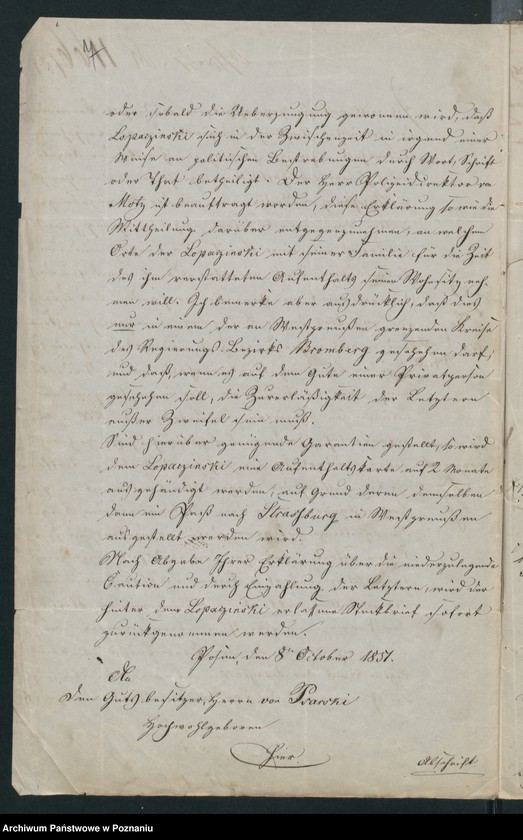 7
oder sobald die Ueberzeugung gewonnen wird, daß
Lopaczinski sich in der Zwischenzeit in irgend einer
Weise an politischen Bestrebungen durch Wort, Schrift
oder That betheiligt. Der Herr Polizeidirektor von
Motz ist beauftragt worden, diese Erklärung so wie die
Mittheilung darüber entgegenzunehmen, an welchem
Orte der Lopaczinski mit seiner Familie für die Zeit
des ihm verstatteten Aufenthalts seinen Wohnsitz neh-
men will. Ich bemerke aber ausdrücklich, daß dies
nur in einem der an Westpreußen grenzenden Kreise
des Regierungs-Bezirks Bromberg geschehen darf,
und daß, wenn es auf dem Gute einer Privatperson
geschehen soll, die Zuverläßigkeit der Letztern
außer Zweifel sein muß.
Sind hierüber genügende Garantien gestellt, so wird
dem Lopaczinski eine Aufenthaltskarte auf 2 Monate
ausgehändigt werden, auf Grund deren demselben
dann ein Paß nach Strasburg in Westpreußen
ausgestellt werden wird.
Nach Abgabe Ihrer Erklärung über die niederzulegende
Caution und durch Einzahlung der Letztern, wird der
hinter dem Lopaczinski erlassene Steckbrief sofort
zurückgenommen werden.
Posen, den 8ten October 1851.
An
den Gutsbesitzer, Herrn von
Hochwohlgeboren
Hier.
Abschrift
Archiwum Państwowe w Poznaniu